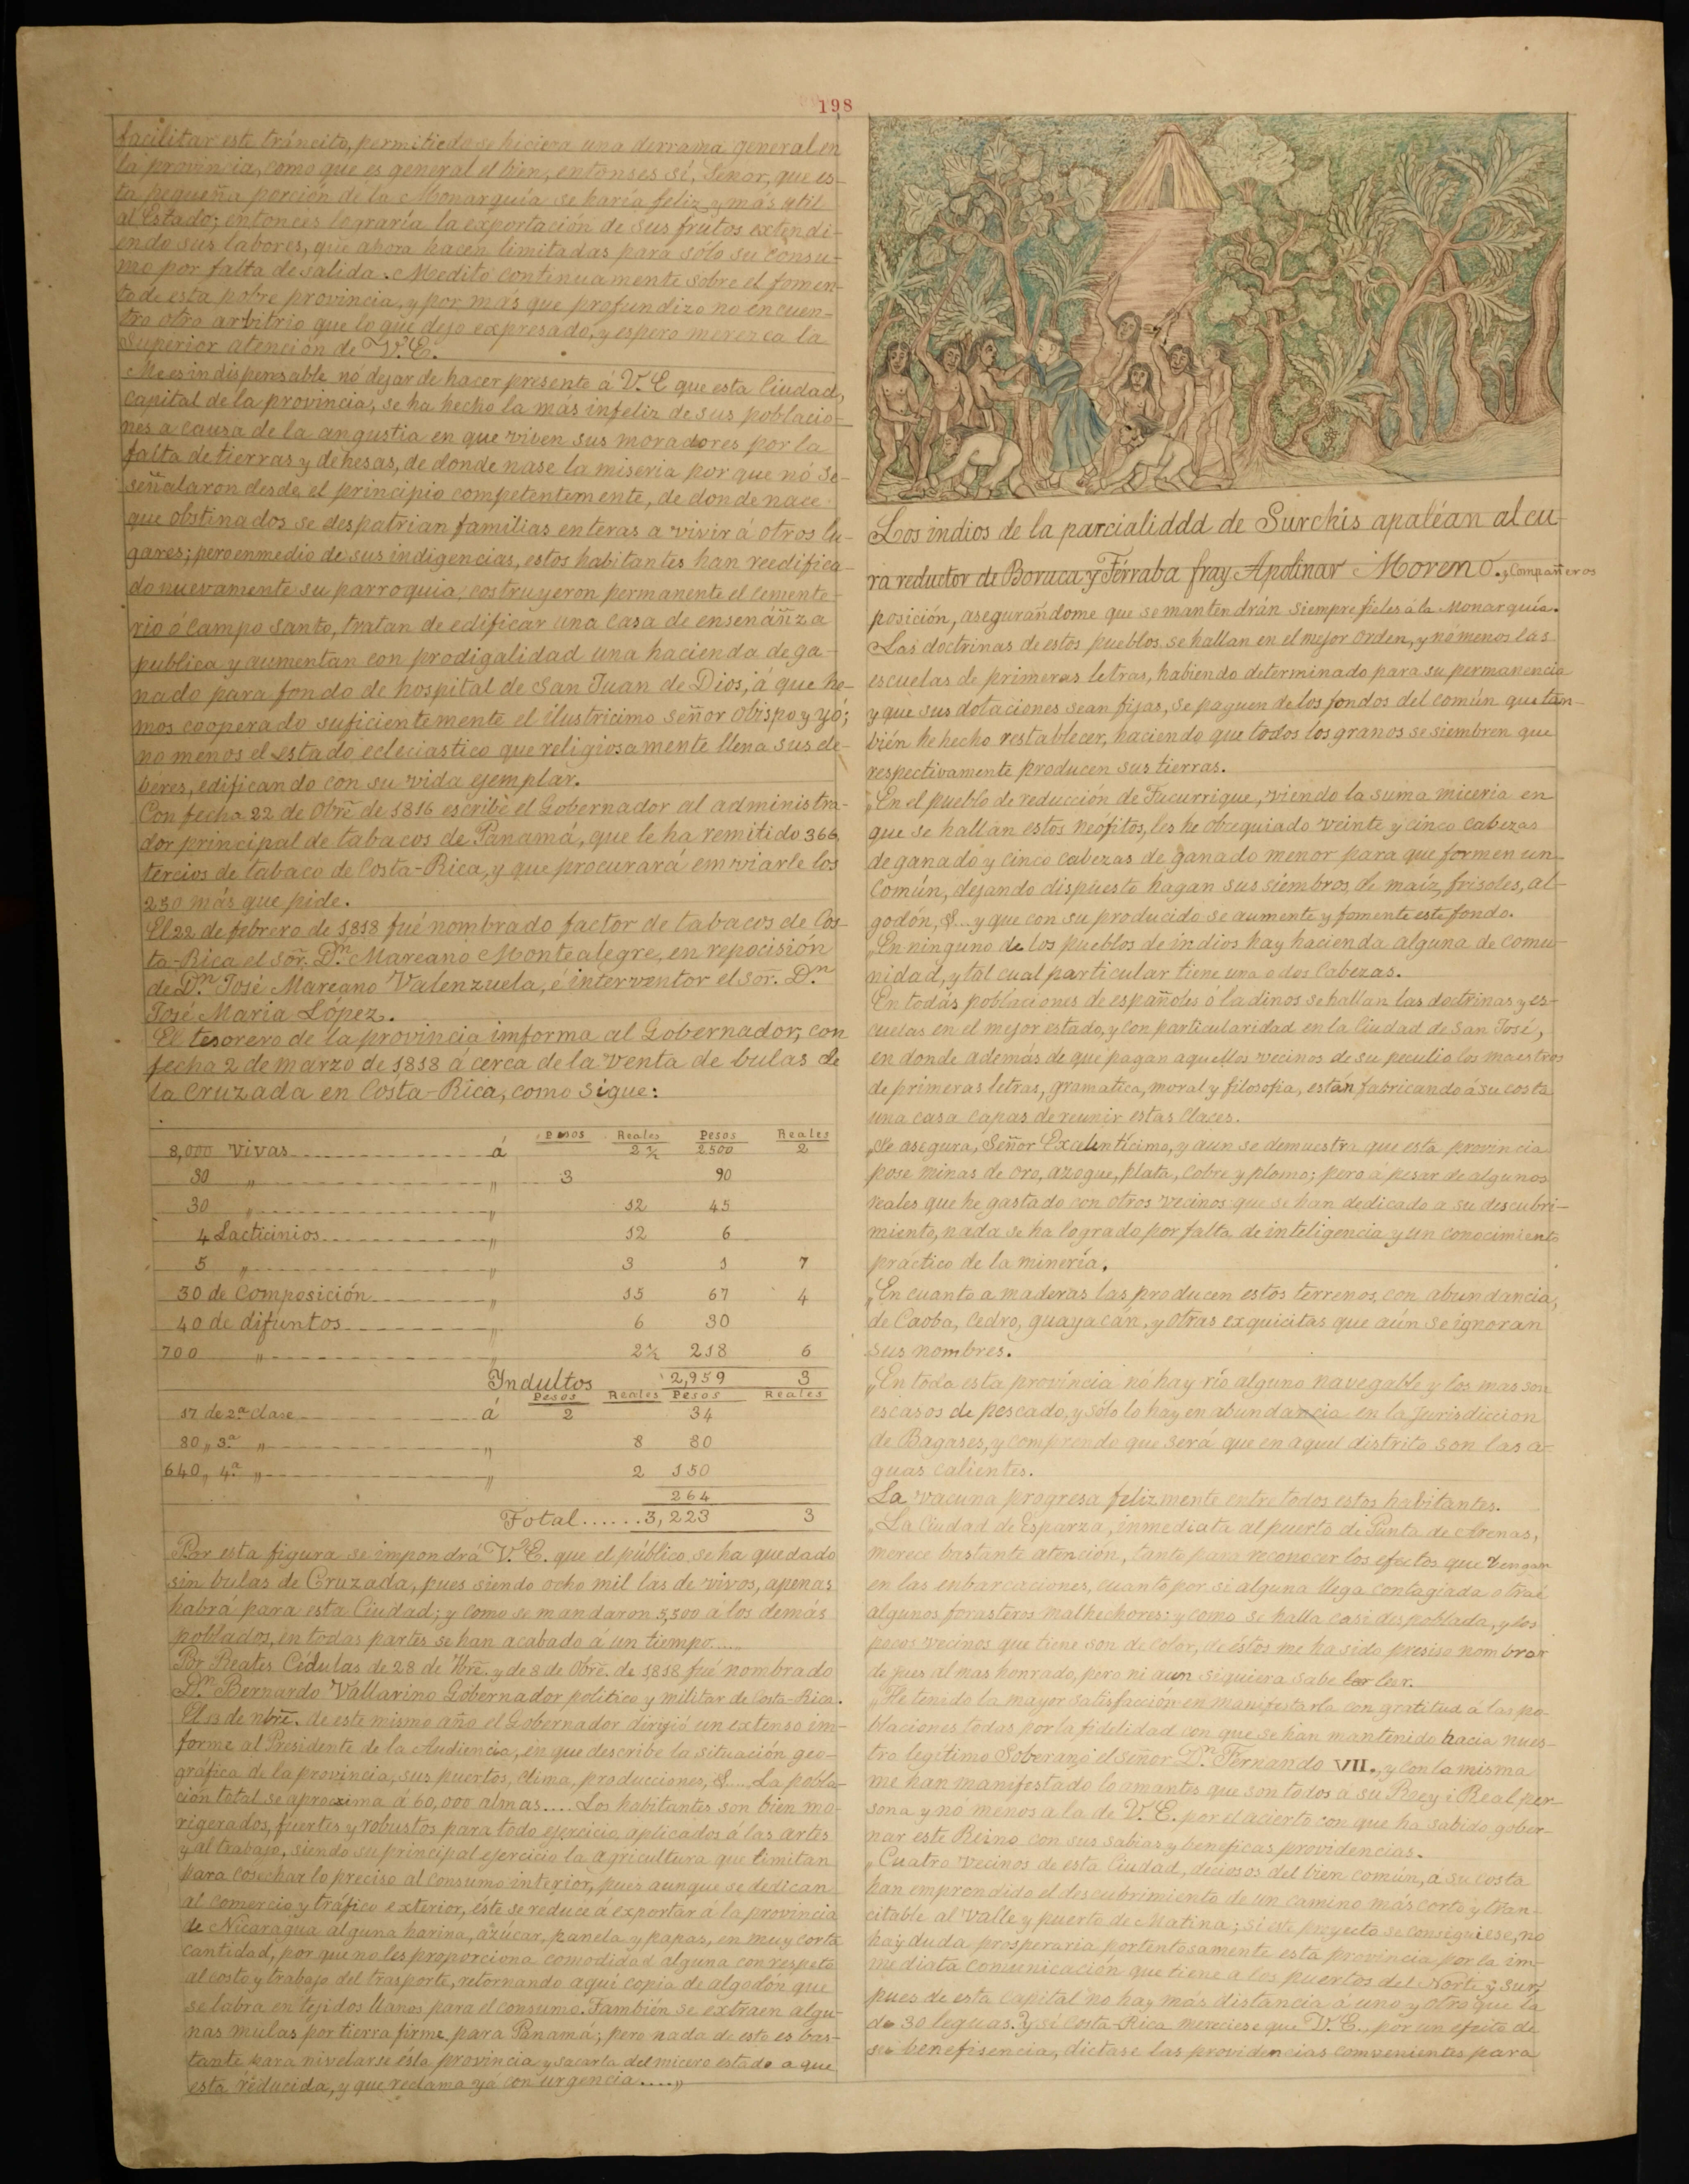 198
facilitar este tráncito, permitiedo se hiciera una derrama general en
la provincia, como que es general el bien, entonses sí, Señor, que es-
ta pequeña porción de la Monarquía se haría feliz y más util
al Estado; entonces lograría la exportación de sus frutos extendi-
endo sus labores, que ahora hacen limitadas para sólo su consu-
mo por falta de salida. Medito continuamente sobre el fomen-
to de esta pobre provincia, y por más que profundizo no encuen-
tro otro arbitrio que lo que dejo expresado, y espero merezca la
superior atención de V.E.
Me es indispensable nó dejar de hacer presente á V.E que esta Ciudad,
capital de la provincia, se ha hecho la más infeliz de sus poblacio-
nes a causa de la angustia en que viven sus moradores por la
falta de tierras y dehesas, de donde nase la miseria por que nó se-
señalaron desde el principio competentemente, de donde nace
que obstinados se despatrian familias enteras a vivir á otros lu-
gares; pero enmedio de sus indigencias, estos habitantes han reedifica-
do nuevamente su parroquia, costruyeron permanente el cemente-
rio ó campo santo, tratan de edificar una casa de enseñáñza
publica y aumentan con prodigalidad una hacienda de ga-
nado para fondo de hospital de San Juan de Dios, á que he-
mos cooperado suficientemente el ilustricimo señor obispo y yó;
no menos el estado ecleciastico que religiosamente llena sus de-
beres, edificando con su vida ejemplar.
Con fecha 22 de Obrẽ de 1816 escribe el Gobernador al administra-
dor principal de tabacos de Panamá, que le ha remitido 366
tercios de tabaco de Costa-Rica, y que procurará emviarle los
230 más que pide.
El 22 de febrero de 1818 fué nombrado factor de tabacos de Cos-
ta-Rica el sor̃. Dn Mareano Montealegre, en repocisión
de Dn José Mareano Valenzuela, é interventor el sor̃. Dn
José María López.
El tesorero de la provincia imforma al Gobernador, con
fecha 2 de marzo de 1818 á cerca de la venta de bulas de
la Cruzada en Costa-Rica, como sigue:
Pesos Reales Pesos Reales
8,000 vivas á 2½ 2500 2
30 „ „ 3 90
30 „ „ 12 45
4 Lacticinios „ 12 6
5 „ „ 3 1 7
30 de Composición „ 15 67 4
40 de difuntos „ 6 30
700 „ „ 2½ 218 6
Indultos 2,959 3
Pesos Reales Pesos Reales
17 de 2.ª clase á 2 34
80 „ 3.ª „ „ 8 80
640 „ 4.ª „ „ 2 150
264
Total......3,223 3
Por esta figura se impondrá V.E. que el público se ha quedado
sin bulas de Cruzada, pues siendo ocho mil las de vivos, apenas
habrá para esta Ciudad; y como se mandaron 5,500 á los demás
poblados, en todas partes se han acabado á un tiempo.....
Por Reales Cédulas de 28 de 7brẽ. y de 8 de Obrẽ. de 1818 fué nombrado
Dn Bernardo Vallarino Gobernador politico y militar de Costa-Rica.
El 13 de nbrẽ. de este mismo año el Gobernador dirijió un extenso im-
forme al Presidente de la Audiencia, en que describe la situación geo-
gráfica de la provincia, sus puertos, clima, producciones, &.... La pobla-
ción total se aprocsima á 60,000 almas.... Los habitantes son bien mo-
rigerados, fuertes y robustos para todo ejercicio, aplicados á las artes
y al trabajo, siendo su principal ejercicio la agricultura que limitan
para cosechar lo preciso al consumo interior, pues aunque se dedican
al comercio y tráfico exterior, éste se reduce á exportar á la provincia
de Nicaragua alguna harina, azúcar, panela y papas, en muy corta
cantidad, por que no les proporciona comodidad alguna con respeto
al costo y trabajo del trasporte, retornando aquí copia de algodón que
se labra en tejidos llanos para el consumo. También se extraen algu-
nas mulas por tierra firme para Panamá; pero nada de esto es bas-
tante para nivelarse ésta provincia y sacarla del micero estado a que
esta reducida, y que reclama yá con urgencia....„
Los indios de la parcialiddd de Surchís apaléan al cu-
ra reductor de Boruca y Térraba fray Apolinar Moreno. y Compañeros
posición, asegurañdome que se mantendrán siempre fieles á la Monarquía.
Las doctrinas de estos pueblos se hallan en el mejor orden, y nó menos las
escuelas de primeras letras, habiendo determinado para su permanencia
y que sus dotaciones sean fijas, se paguen de los fondos del común que tan-
bién he hecho restablecer, haciendo que todos los granos se siembren que
respectivamente producen sus tierras.
„En el pueblo de reducción de Tucurrique, viendo la suma miceria en
que se hallan estos neófitos, les he obcequiado veinte y cinco cabezas
de ganado y cinco cabezas de ganado menor para que formen un
Común, dejando dispuesto hagan sus siembros de maíz, frisoles, al-
godón, &... y que con su producido se aumente y fomente este fondo.
„En ninguno de los pueblos de indios hay hacienda alguna de comu-
nidad, y tal cual particular tiene una o dos Cabezas.
En todas poblaciones de españoles ó ladinos se hallan las doctrinas y es-
cuelas en el mejor estado, y con particularidad en la Ciudad de San José,
en donde además de que pagan aquellos vecinos de su peculio los maestros
de primeras letras, gramatica, moral y filosofia, están fabricando á su costa
una casa capas de reunir estas Claces.
„Se asegura, Señor Excelentícimo, y aun se demuestra que esta provincia
pose minas de oro, azogue, plata, cobre y plomo; pero á pesar de algunos
reales que he gastado con otros vecinos que se han dedicado a su descubri-
miento, nada se ha logrado por falta de inteligencia y un conocimiento
práctico de la minería.
„En cuanto a maderas las producen estos terrenos con abundancia,
de Caoba, Cedro, guayacán, y otras exquicitas que aún se ignoran
sus nombres.
„En toda esta provincia nó hay río alguno navegable y los mas son
escasos de pescado, y sólo lo hay en abundancia en la jurisdiccion
de Bagases, y comprendo que será que en aquel distrito son las a-
guas calientes.
La vacuna progresa felizmente entre todos estos habitantes.
„La Ciudad de Esparza, inmediata al puerto de Punta de Arenas,
merece bastante atención, tanto para reconocer los efectos que vengan
en las enbarcaciones, cuanto por si alguna llega contagiada o traé
algunos forasteros malhechores; y como se halla casi despoblada, y los
pocos vecinos que tiene son de color, de éstos me ha sido presiso nombrar
de jues al mas honrado, pero ni aun siquiera sabe leer.
„He tenido la mayor satisfacción en manifestarla con gratitud á las po-
blaciones todas por la fidelidad con que se han mantenido hacia nues-
tro legítimo Soberano el señor Dn Fernando VII., y con la misma
me han manifestado lo amantes que son todos á su Rey i Real per-
sona y nó menos a la de V.E. por el acierto con que ha sabido gober-
nar este Reino con sus sabias y beneficas providencias.
„Cuatro vecinos de esta Ciudad, deciosos del bien común, a su costa
han emprendido el descubrimiento de un camino más corto y tran-
citable al valle y puerto de Matina; si este proyecto se consiguiese, no
hay duda prosperaria portentosamente esta provincia por la im-
mediata comunicación que tiene a los puertos del Norte y Sur,
pues de esta capital no hay más distancia á uno y otro que la
de 30 leguas. Y si Costa-Rica mereciese que V.E., por un efeito de
su benefisencia, dictase las providencias comvenientes para